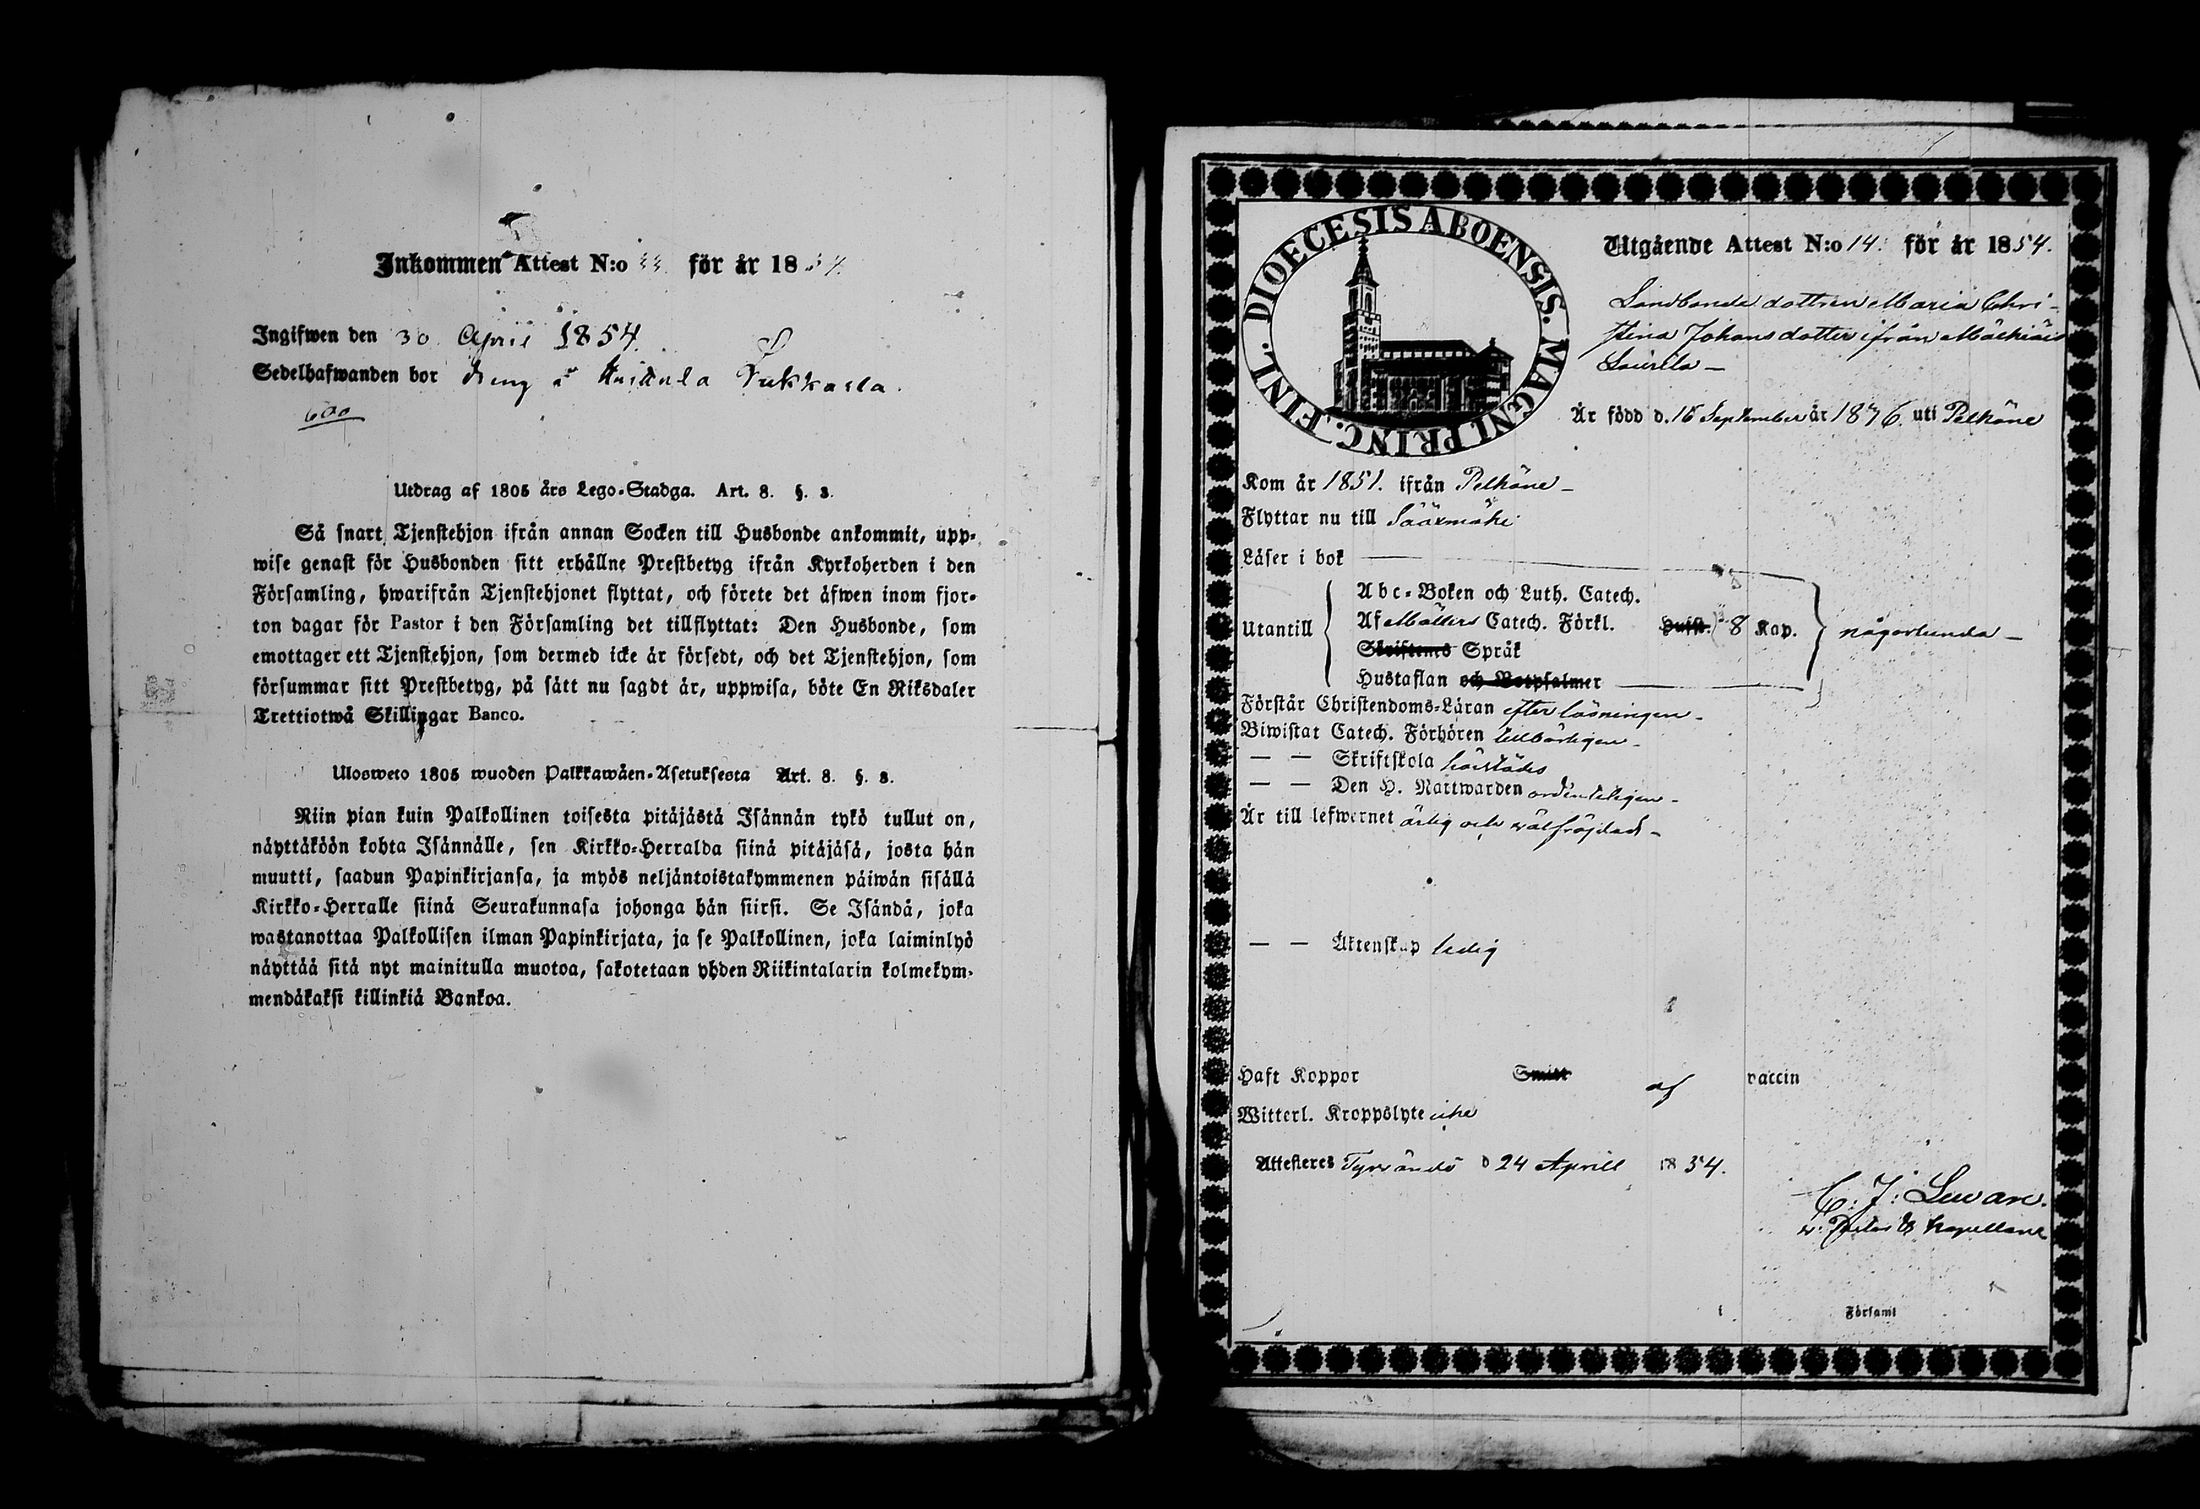 Inkommen Attest N:o 33 för år 1854.
Ingifwen den 30 April 1854.
Sedelhafwanden bor
600
Utdrag af 1805 års Lego-Stadga. Art. 8. §. 3.
Så snart Tjenstehjon ifrån annan Socken till Husbonde ankommit, upp-
wise genast för Husbonden sitt erhållne Prestbetyg ifrån Kyrkoherden i den
Församling, hwarifrån Tjenstehjonet flyttat, och förete det äfwen inom fjor-
ton dagar för Pastor i den Församling det tillflyttat: Den Husbonde, som
emottager ett Tjenstehjon, som dermed icke är försedt, och det Tjenstehjon, som
försummar sitt Prestbetyg, på sätt nu sagdt är, uppwisa, böte En Riksdaler
Trettiotwå Skillingar Banco.
Ulosweto 1805 wuoden Palkkawäen-Asetuksesta Art. 8. §. 3.
Niin pian kuin Palkollinen toisesta pitäjästä Isännän tykö tullut on,
näyttäköön kohta Isännälle, sen Kirkko-Herralda siinä pitäjäsä, josta hän
muutti, saadun Papinkirjansa, ja myös neljäntoistakymmenen päiwän sisällä
Kirkko-Herralle siinä Seurakunnasa johonga hän siirsi. Se Isändä, joka
wastanottaa Palkollisen ilman Papinkirjata, ja se Palkollinen, joka laiminlyö
näyttää sitä nyt mainitulla muotoa, sakotetaan yhden Riikintalarin kolmekym-
mendäkaksi killinkiä Bankoa.
DIOECESIS ABOENSIS. MAGNI PRINC. FINL.
Utgående Attest N:o 14. för år 1854.
Landbonde dottren Maria Chri-
stina Johansdotter ifrån
Laurila
Är född d. 16 September år 1836 uti Pelkäne
Kom år 1851. ifrån Pelkäne
Flyttar nu till Sääxmäki
Läser i bok
Utantill
Abc-Boken och Luth. Catech.
Af Möllers Catech. Förkl. Hufst. 8 Kap. någorlunda
Skriftenes Språk
Hustaflan och Botpsalmer
Förstår Christendoms-Läran efter läsningen
Biwistat Catech. Förhören tillbörligen
— — Skriftskola härstädes
— — Den H. Nattwarden ordenteligen
Är till lefwernet ärlig och välfräjdad
— — Äktenskap ledig
Haft Koppor Smitt af vaccin
Witterl. Kroppslyte icke
Attesteres Tyrväntö d 24 Aprill 1854.
C. J. Lewan.
v. Pastor & Kapellan
i Församl